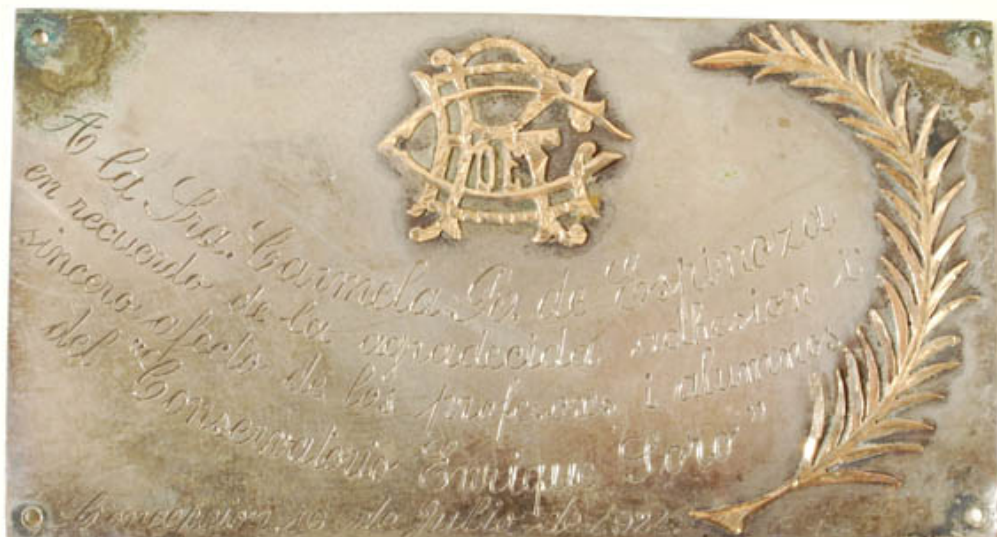 A la Sra. Carmela de Espinoza
en recuerdo de la agradecida adhesion i
sincero afecto de los profesores i alumnos
del "Conservatorio Enrique Soro"
Concepcion, 16 de Julio de